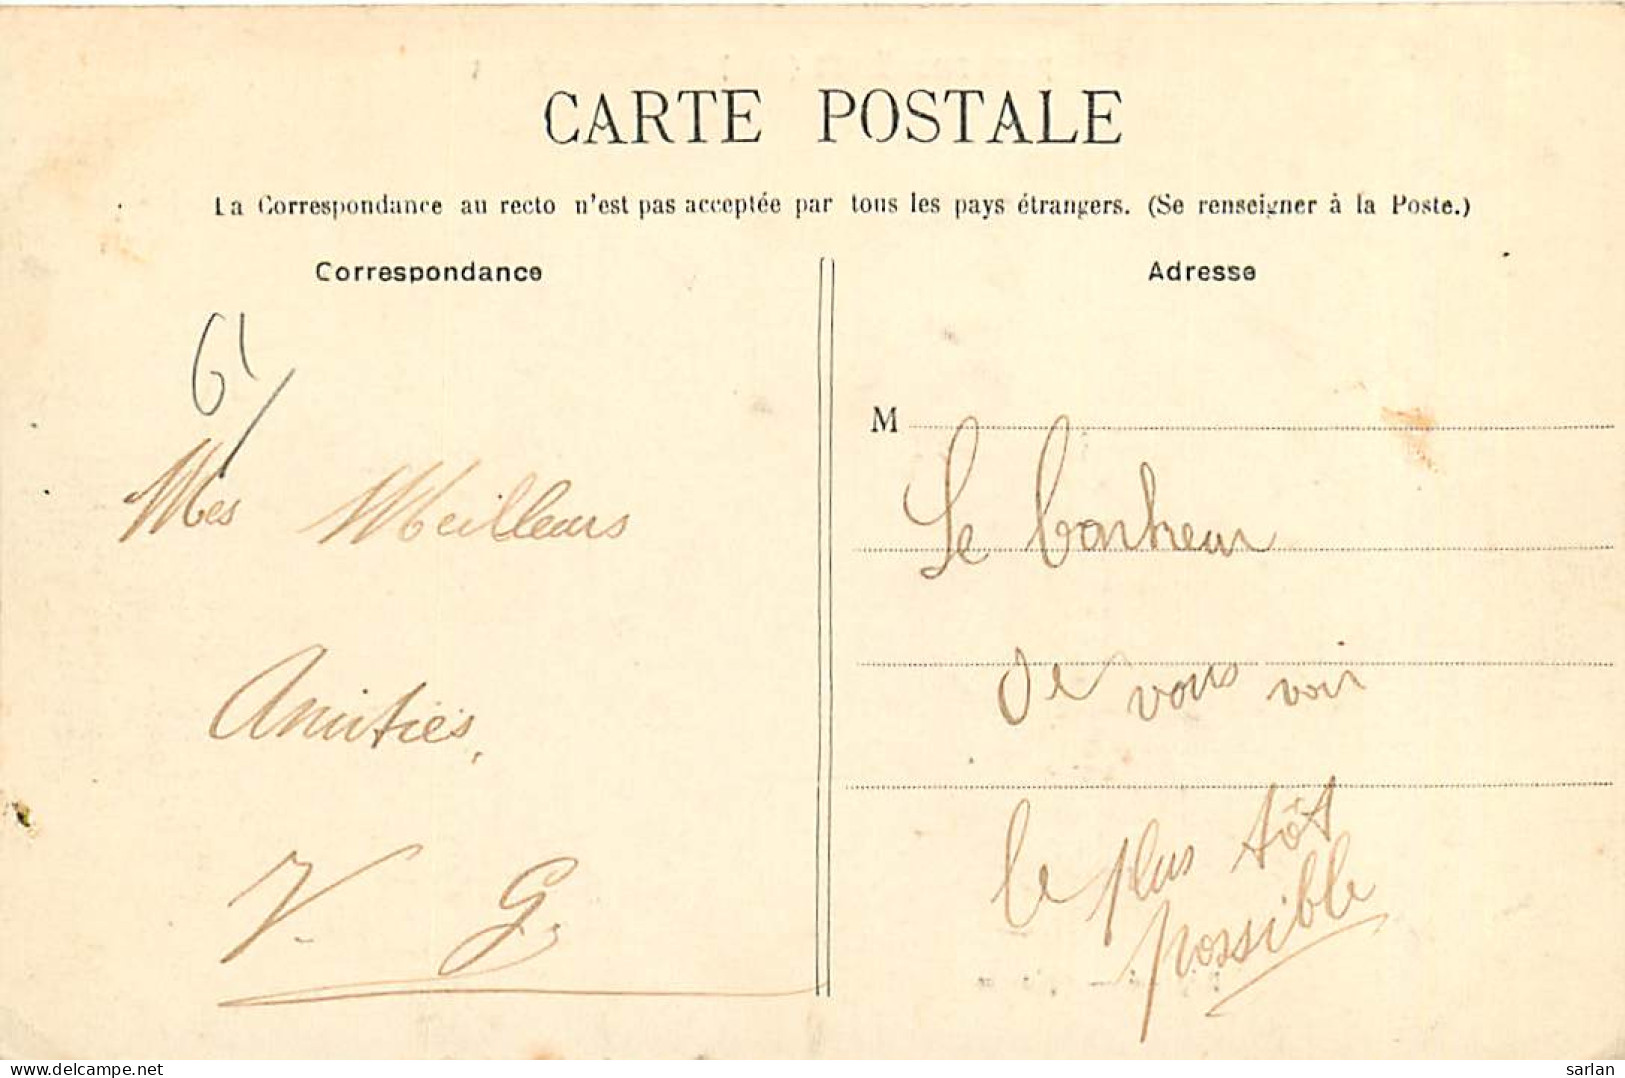 CARTE POSTALE
La Correspondance au recto n'est pas acceptée par tous les pays étrangers. (Se renseigner à la Poste.)
Correspondance
61/
Mes Meilleurs
Amitiés,
V. G.
Adresse
M
Le bonheur
de vous voir
le plus tôt
possible
delcampe.net
sarlan